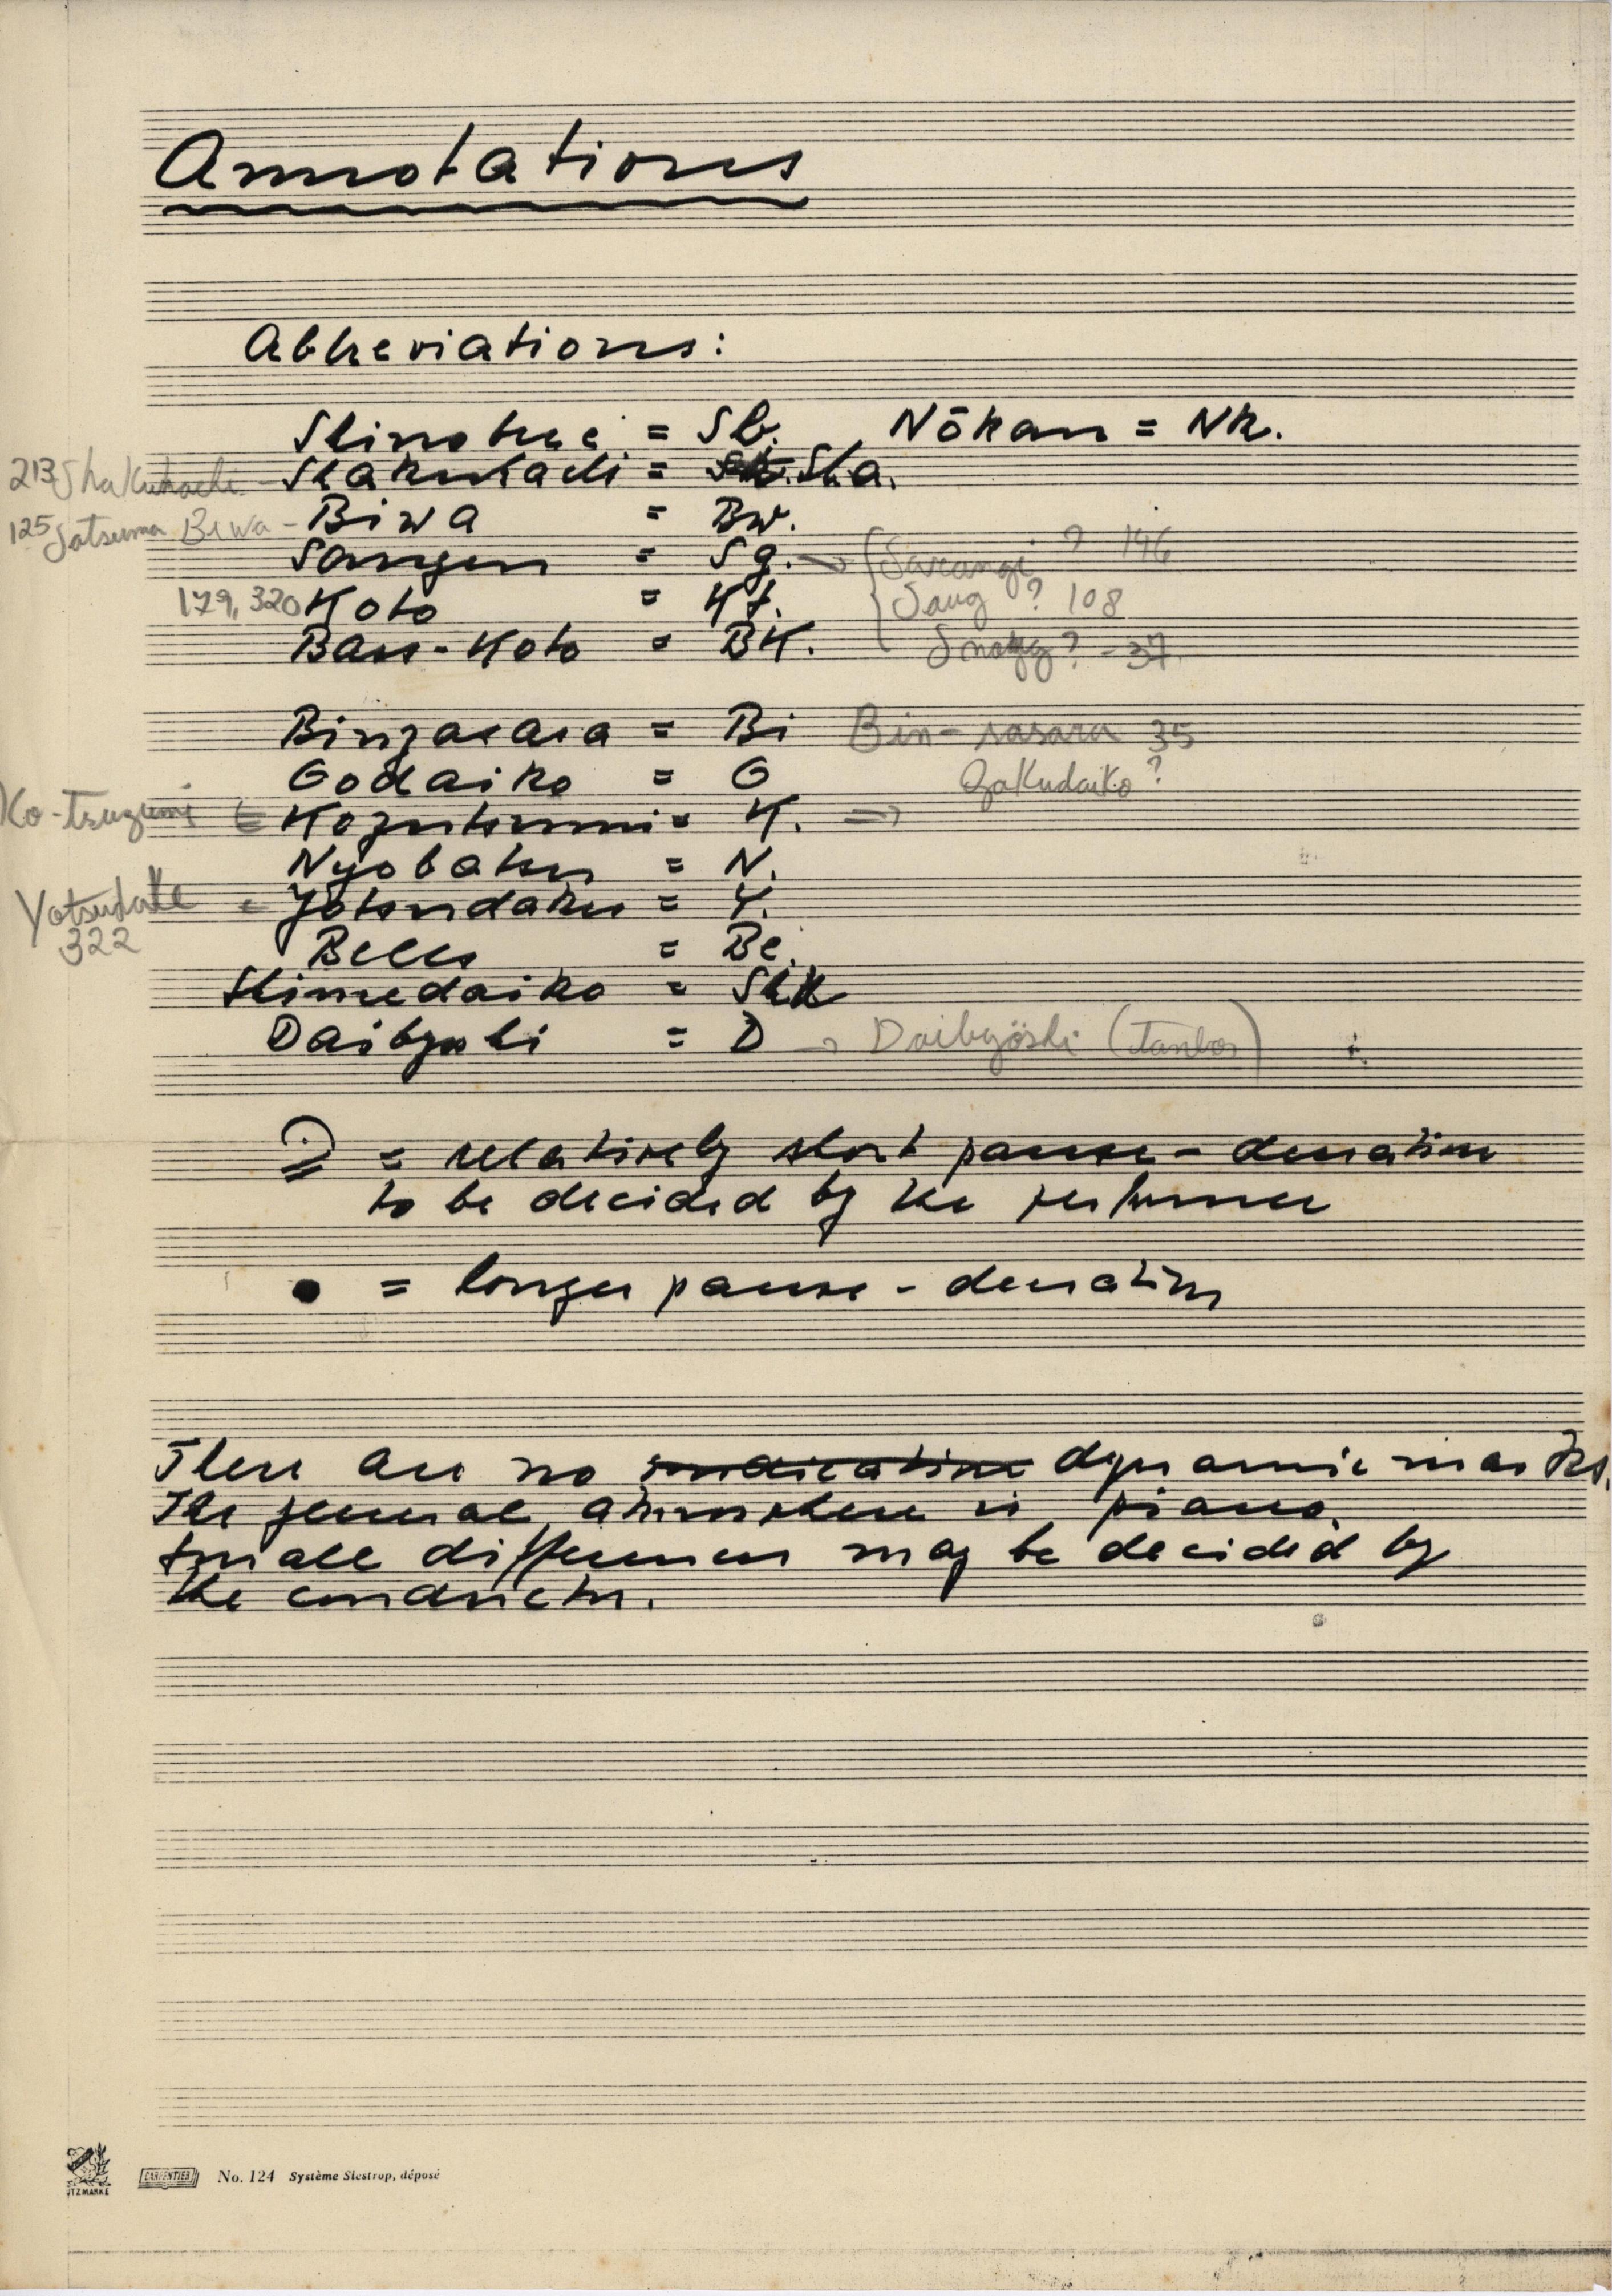 Annotations
Abbreviations:
Shinobue = Sb. Nōkan = Nk.
213 Shakuhachi - Shakuhachi = Sha.
125 Satsuma Biwa - Biwa = Bw.
Sangen = Sg. → Sarangi ? 146
179, 320 Koto = Kt. Saug ? 108
Bass-Koto = BK. ? - 37
Binzasara = Bi Bin-sasara 35
Oodaiko = O Gakudaiko ?
Ko-tsuzumi Kozutsumi = K. →
Nyobatsu = N.
Yotsudake Yotsudaku = Y.
322
Bells = Be.
Shimedaiko = Shk
Daibyoshi = D → Daibyöshi (Tambor)
= relatively short pause - duration
to be decided by the performer
● = longer pause - duration
There are no indication dynamic marks.
The general atmosphere is piano.
Small differences may be decided by
the conductor.
UTZMARKE CARPENTIER No. 124 Système Slestrop, déposé